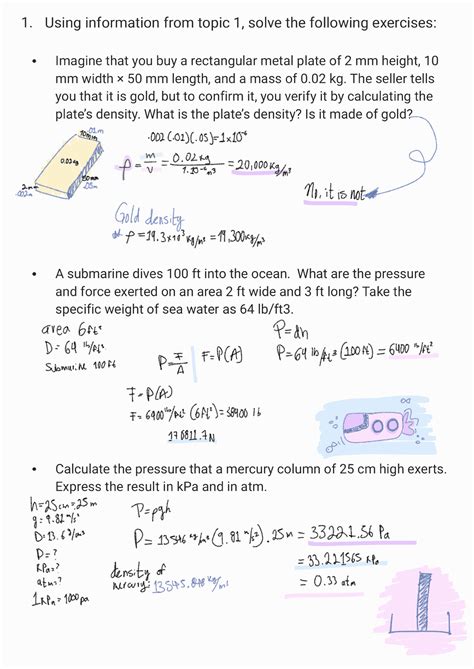 1. Using information from topic 1, solve the following exercises:
• Imagine that you buy a rectangular metal plate of 2 mm height, 10
mm width × 50 mm length, and a mass of 0.02 kg. The seller tells
you that it is gold, but to confirm it, you verify it by calculating the
plate's density. What is the plate's density? Is it made of gold?
.01m
10mm
.002 (.01)(.05)=1x10⁻⁶
0.02 kg
ρ = m/v = 0.02 kg / 1.10⁻⁶ m³ = 20,000 kg/m³
50mm
.05m
2mm
.002m
No, it is not
Gold density
ρ = 19.3x10³ kg/m³ = 19,300 kg/m³
• A submarine dives 100 ft into the ocean. What are the pressure
and force exerted on an area 2 ft wide and 3 ft long? Take the
specific weight of sea water as 64 lb/ft3.
area 6ft²
D = 64 lb/ft³
Submarine 100 ft
P = F/A
F = P(A)
P = dh
P = 64 lb/ft³ (100 ft) = 6400 lb/ft²
F = P(A)
F = 6400 lb/ft² (6ft²) = 38400 lb
170811.7N
• Calculate the pressure that a mercury column of 25 cm high exerts.
Express the result in kPa and in atm.
h = 25cm = .25m
g = 9.81 m/s²
D = 13.6 g/cm³
D = ?
kPa = ?
atm = ?
1 kPa = 1000 pa
P = ρgh
P = 13546 kg/m³ (9.81 m/s²) .25m = 33221.56 Pa
= 33.221565 kPa
= 0.33 atm
density of
mercury: